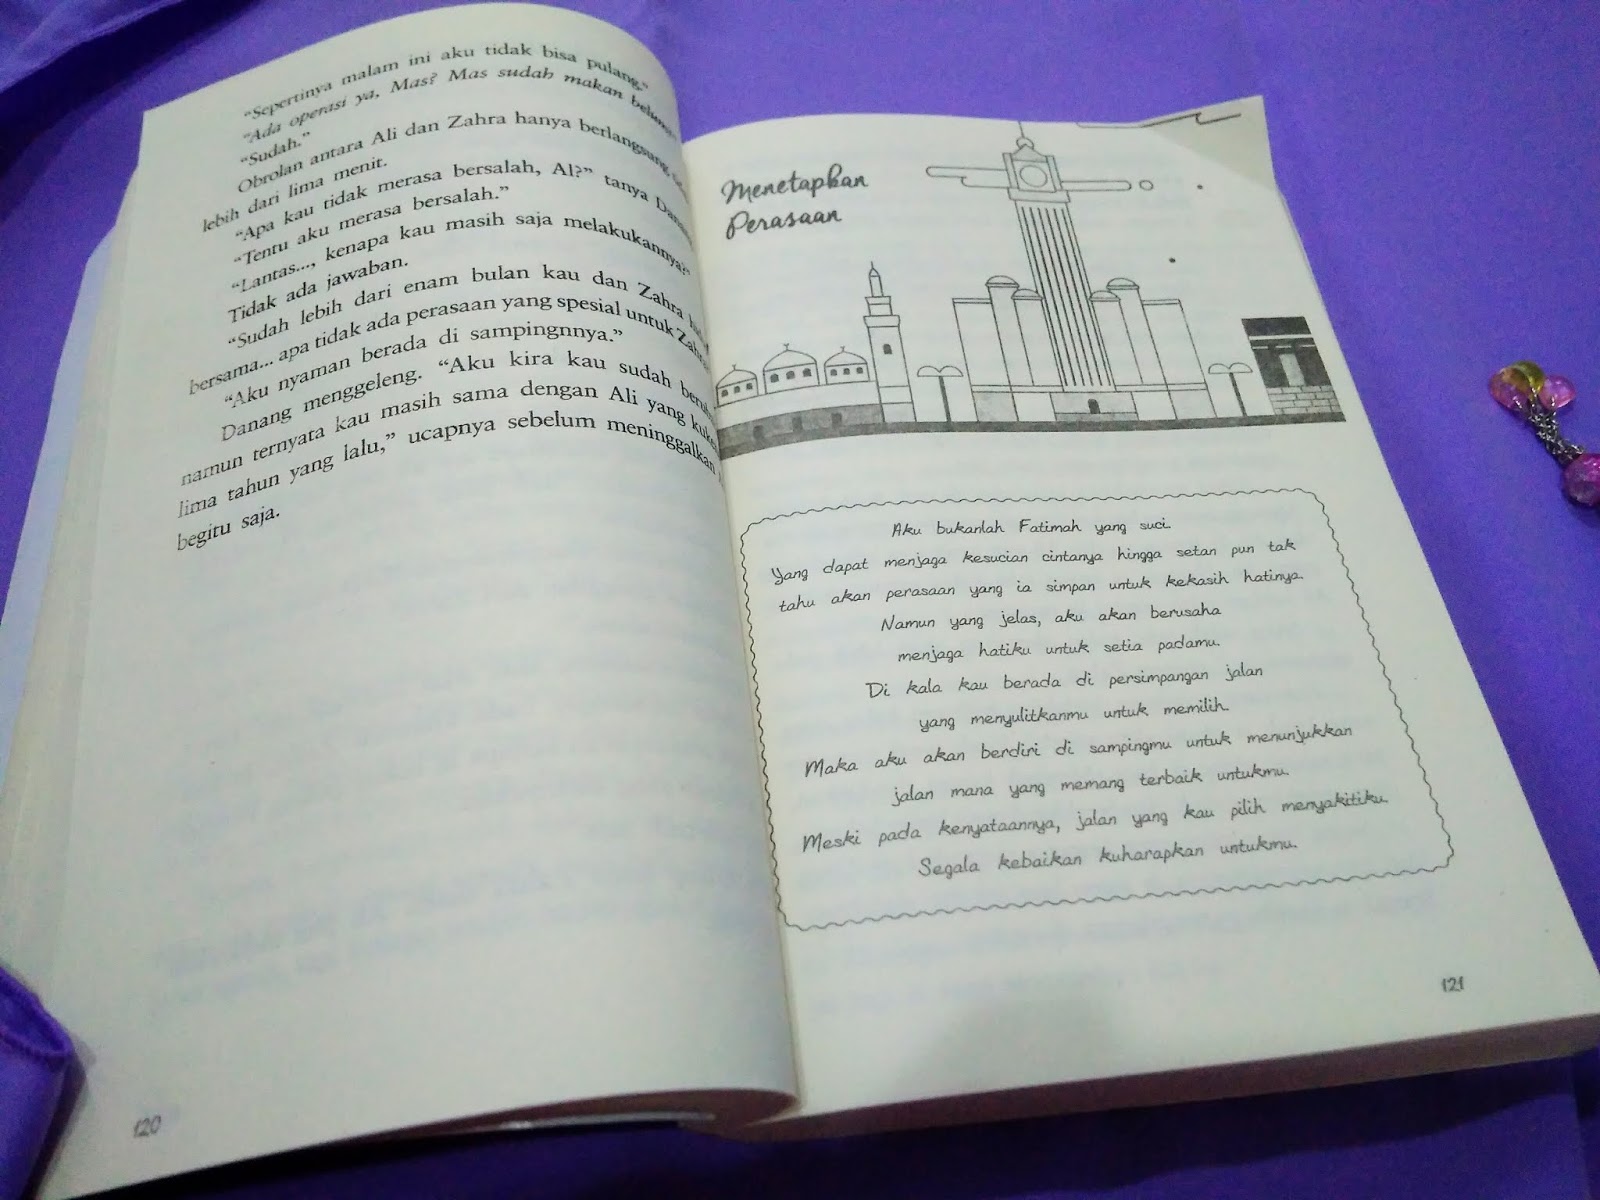 "Sepertinya malam ini aku tidak bisa pulang."
"Ada operasi ya, Mas? Mas sudah makan belum?"
"Sudah."
Obrolan antara Ali dan Zahra hanya berlangsung
lebih dari lima menit.
"Apa kau tidak merasa bersalah, Al?" tanya Danang
"Tentu aku merasa bersalah."
"Lantas..., kenapa kau masih saja melakukannya?"
Tidak ada jawaban.
"Sudah lebih dari enam bulan kau dan Zahra
bersama... apa tidak ada perasaan yang spesial untuk Zahra
"Aku nyaman berada di sampingnnya."
Danang menggeleng. "Aku kira kau sudah
namun ternyata kau masih sama dengan Ali yang
lima tahun yang lalu," ucapnya sebelum meninggalkan
begitu saja.
120
Menetapkan
Perasaan
Aku bukanlah Fatimah yang suci.
Yang dapat menjaga kesucian cintanya hingga setan pun tak
tahu akan perasaan yang ia simpan untuk kekasih hatinya.
Namun yang jelas, aku akan berusaha
menjaga hatiku untuk setia padamu.
Di kala kau berada di persimpangan jalan
yang menyulitkanmu untuk memilih.
Maka aku akan berdiri di sampingmu untuk menunjukkan
jalan mana yang memang terbaik untukmu.
Meski pada kenyataannya, jalan yang kau pilih menyakitiku.
Segala kebaikan kuharapkan untukmu.
121